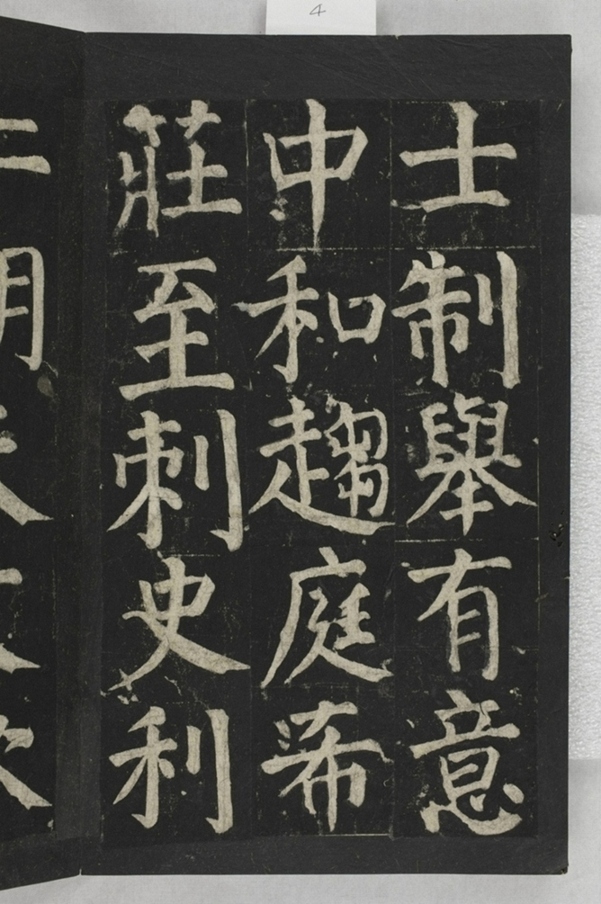 4
士制舉有意
中和趨庭希
莊至刺史利